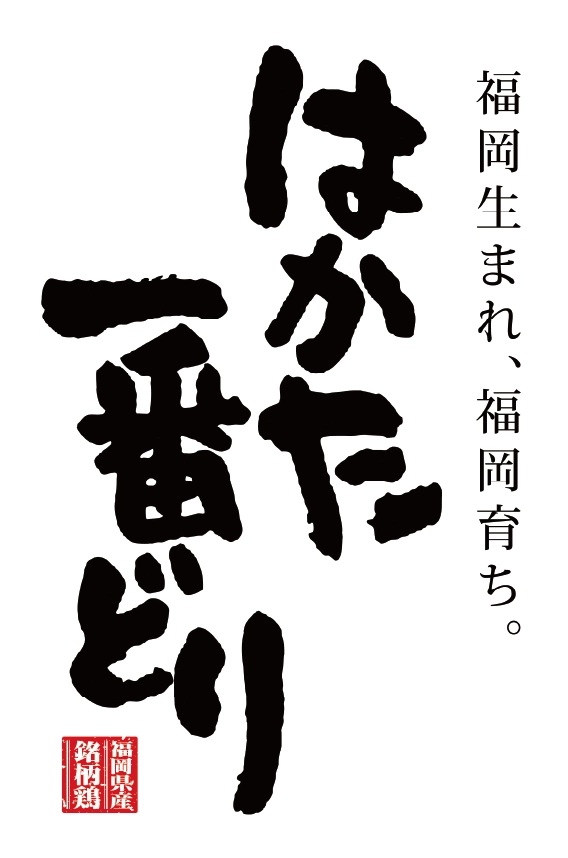 福岡生まれ、福岡育ち。
はかた
一番どり
福岡県産
銘柄鶏